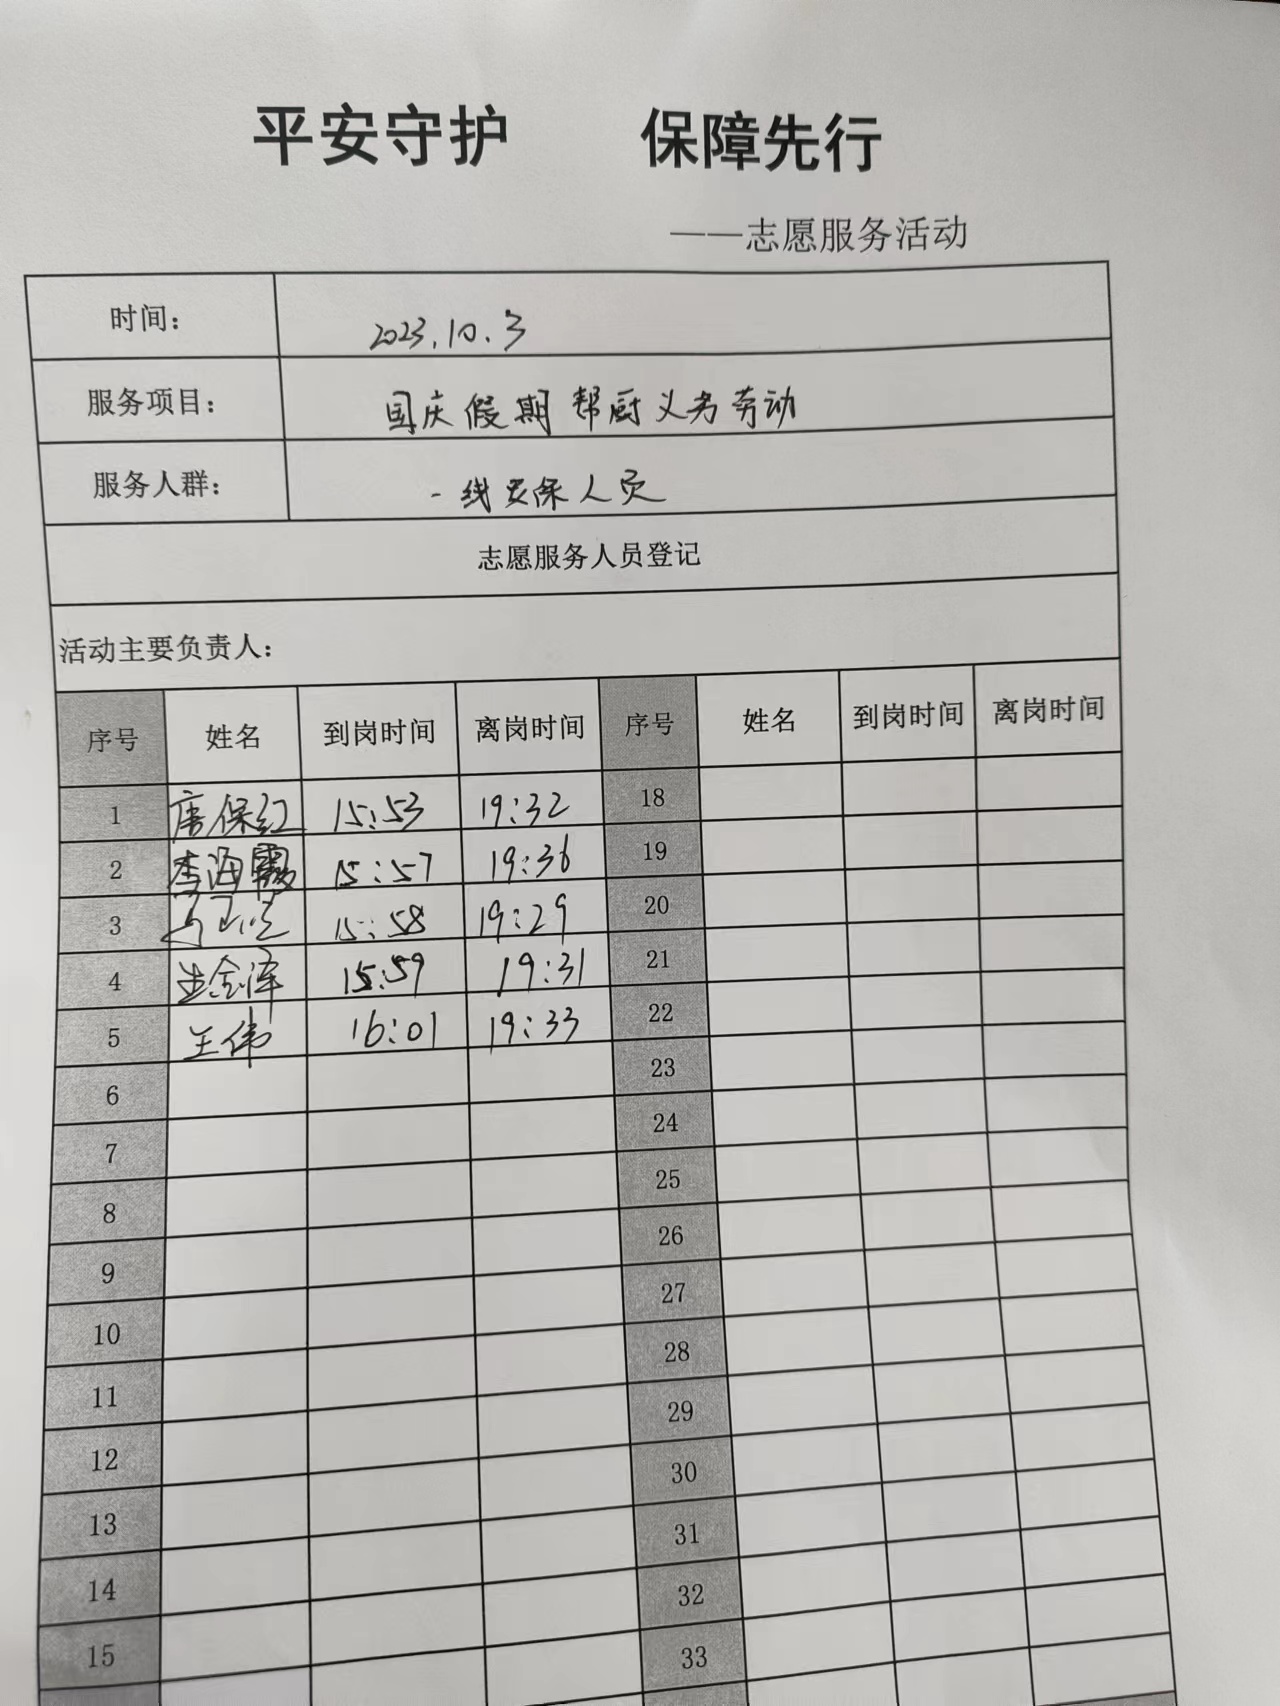 平安守护 保障先行
——志愿服务活动
时间： 2023.10.3
服务项目： 国庆假期帮厨义务劳动
服务人群： 一线安保人员
志愿服务人员登记
活动主要负责人：
序号 姓名 到岗时间 离岗时间 序号 姓名 到岗时间 离岗时间
1 唐保红 15:53 19:32 18
2 李海霞 15:57 19:36 19
3 15:58 19:29 20
4 金泽 15:59 19:31 21
5 王伟 16:01 19:33 22
6 23
7 24
8 25
9 26
10 27
11 28
12 29
13 30
14 31
15 32
33